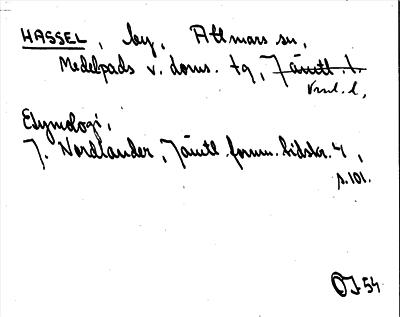 HASSEL, by, Attmars sn,
Medelpads v. doms. tg, Jämtl. l.
Vnl. l,
Etymologi,
J. Nordlander, Jämtl. fornm. tidskr. 4,
s. 101.
OJ 54